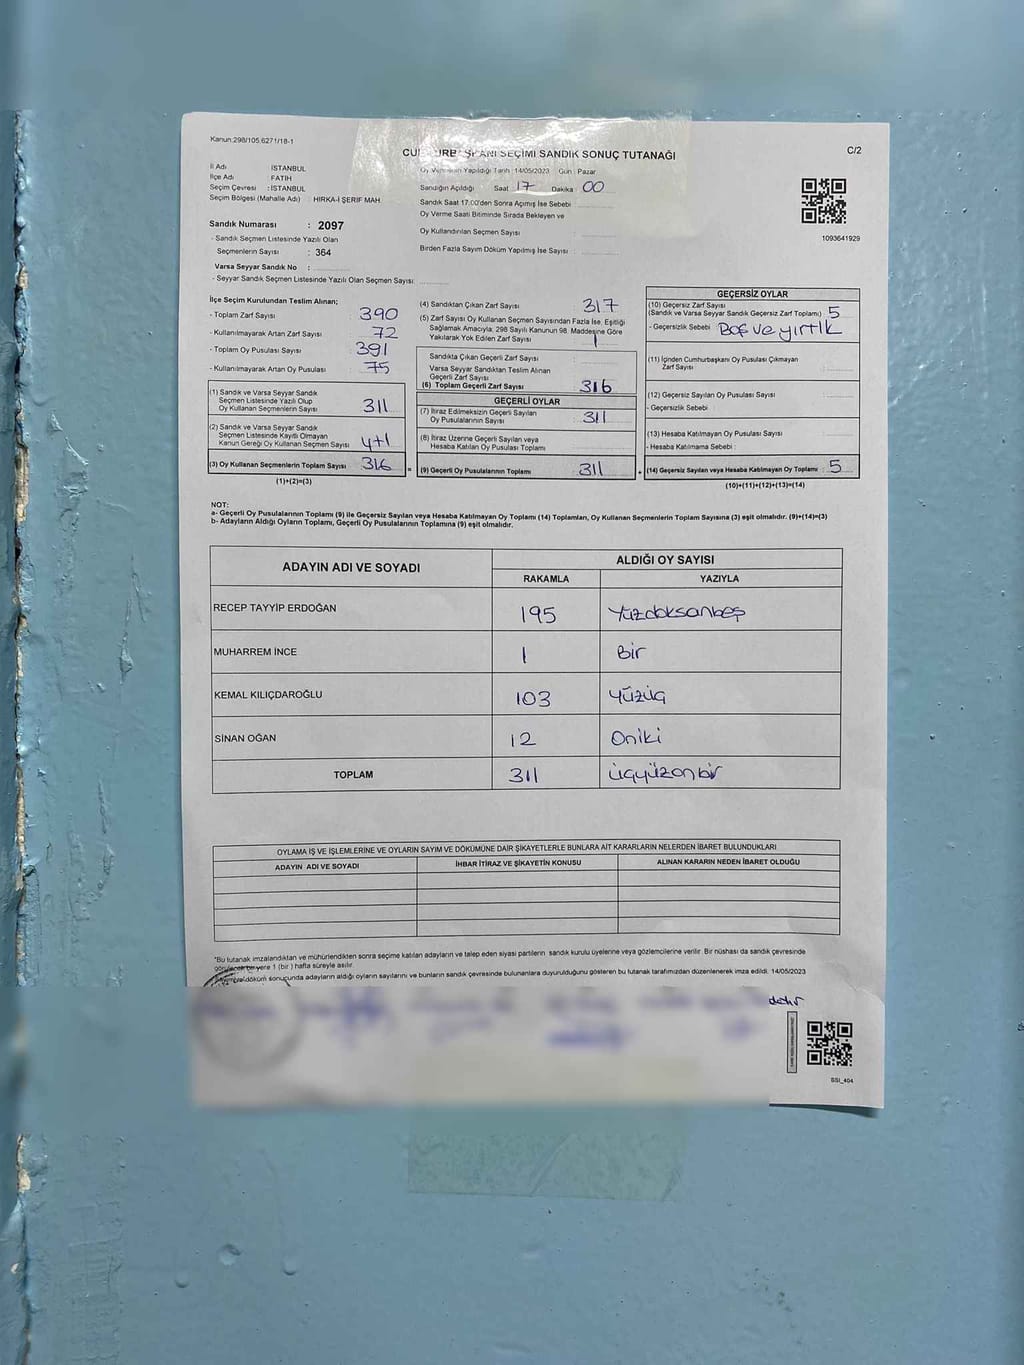 Kanun:298/105.6271/18-1
SEÇİMİ SANDIK SONUÇ TUTANAĞI
C/2
İl Adı İSTANBUL
İlçe Adı FATİH
Seçim Çevresi : İSTANBUL
Seçim Bölgesi (Mahalle Adı) : HIRKA-İ ŞERİF MAH.
Oy Yapıldığı Tarih : 14/05/2023 Gün : Pazar
Sandığın Açıldığı Saat 17 Dakika 00
Sandık Saat 17:00'den Sonra Açmış İse Sebebi
Oy Verme Saati Bitiminde Sırada Bekleyen ve
Oy Kullandırılan Seçmen Sayısı
Birden Fazla Sayım Döküm Yapılmış İse Sayısı
1093641929
Sandık Numarası : 2097
- Sandık Seçmen Listesinde Yazılı Olan
Seçmenlerin Sayısı : 364
Varsa Seyyar Sandık No :
- Seyyar Sandık Seçmen Listesinde Yazılı Olan Seçmen Sayısı:
İlçe Seçim Kurulundan Teslim Alınan;
- Toplam Zarf Sayısı 390
- Kullanılmayarak Artan Zarf Sayısı 72
- Toplam Oy Pusulası Sayısı 391
- Kullanılmayarak Artan Oy Pusulası 75
(1) Sandık ve Varsa Seyyar Sandık
Seçmen Listesinde Yazılı Olup
Oy Kullanan Seçmenlerin Sayısı 311
(2) Sandık ve Varsa Seyyar Sandık
Seçmen Listesinde Kayıtlı Olmayan
Kanun Gereği Oy Kullanan Seçmen Sayısı 4+1
(3) Oy Kullanan Seçmenlerin Toplam Sayısı 316 =
(1)+(2)=(3)
(4) Sandıktan Çıkan Zarf Sayısı 317
(5) Zarf Sayısı Oy Kullanan Seçmen Sayısından Fazla İse, Eşitliği
Sağlamak Amacıyla, 298 Sayılı Kanunun 98. Maddesine Göre
Yakılarak Yok Edilen Zarf Sayısı 1
Sandıkta Çıkan Geçerli Zarf Sayısı
Varsa Seyyar Sandıktan Teslim Alınan
Geçerli Zarf Sayısı
(6) Toplam Geçerli Zarf Sayısı 316
GEÇERLİ OYLAR
(7) İtiraz Edilmeksizin Geçerli Sayılan
Oy Pusulalarının Sayısı 311
(8) İtiraz Üzerine Geçerli Sayılan veya
Hesaba Katılan Oy Pusulası Toplamı
(9) Geçerli Oy Pusulalarının Toplamı 311 +
GEÇERSİZ OYLAR
(10) Geçersiz Zarf Sayısı
(Sandık ve Varsa Seyyar Sandık Geçersiz Zarf Toplamı) : 5
- Geçersizlik Sebebi Boş ve yırtık
(11) İçinden Cumhurbaşkanı Oy Pusulası Çıkmayan
Zarf Sayısı
(12) Geçersiz Sayılan Oy Pusulası Sayısı
- Geçersizlik Sebebi
(13) Hesaba Katılmayan Oy Pusulası Sayısı
- Hesaba Katılmama Sebebi :
(14) Geçersiz Sayılan veya Hesaba Katılmayan Oy Toplamı : 5
(10)+(11)+(12)+(13)=(14)
NOT:
a- Geçerli Oy Pusulalarının Toplamı (9) ile Geçersiz Sayılan veya Hesaba Katılmayan Oy Toplamı (14) Toplamları, Oy Kullanan Seçmenlerin Toplam Sayısına (3) eşit olmalıdır. (9)+(14)=(3)
b- Adayların Aldığı Oyların Toplamı, Geçerli Oy Pusulalarının Toplamına (9) eşit olmalıdır.
ADAYIN ADI VE SOYADI ALDIĞI OY SAYISI
RAKAMLA YAZIYLA
RECEP TAYYİP ERDOĞAN 195 Yüzdoksanbeş
MUHARREM İNCE 1 Bir
KEMAL KILIÇDAROĞLU 103 Yüzüç
SİNAN OĞAN 12 Oniki
TOPLAM 311 üçyüzonbir
OYLAMA İŞ VE İŞLEMLERİNE VE OYLARIN SAYIM VE DÖKÜMÜNE DAİR ŞİKAYETLERLE BUNLARA AİT KARARLARIN NELERDEN İBARET BULUNDUKLARI
ADAYIN ADI VE SOYADI İHBAR İTİRAZ VE ŞİKAYETİN KONUSU ALINAN KARARIN NEDEN İBARET OLDUĞU
*Bu tutanak imzalandıktan ve mühürlendikten sonra seçime katılan adayların ve talep eden siyasi partilerin sandık kurulu üyelerine veya gözlemcilerine verilir. Bir nüshası da sandık çevresinde
bir yere 1 (bir) hafta süreyle asılır.
döküm sonucunda adayların aldığı oyların sayılarını ve bunların sandık çevresinde bulunanlara duyurulduğunu gösteren bu tutanak tarafımızdan düzenlenerek imza edildi. 14/05/2023
SSI_404